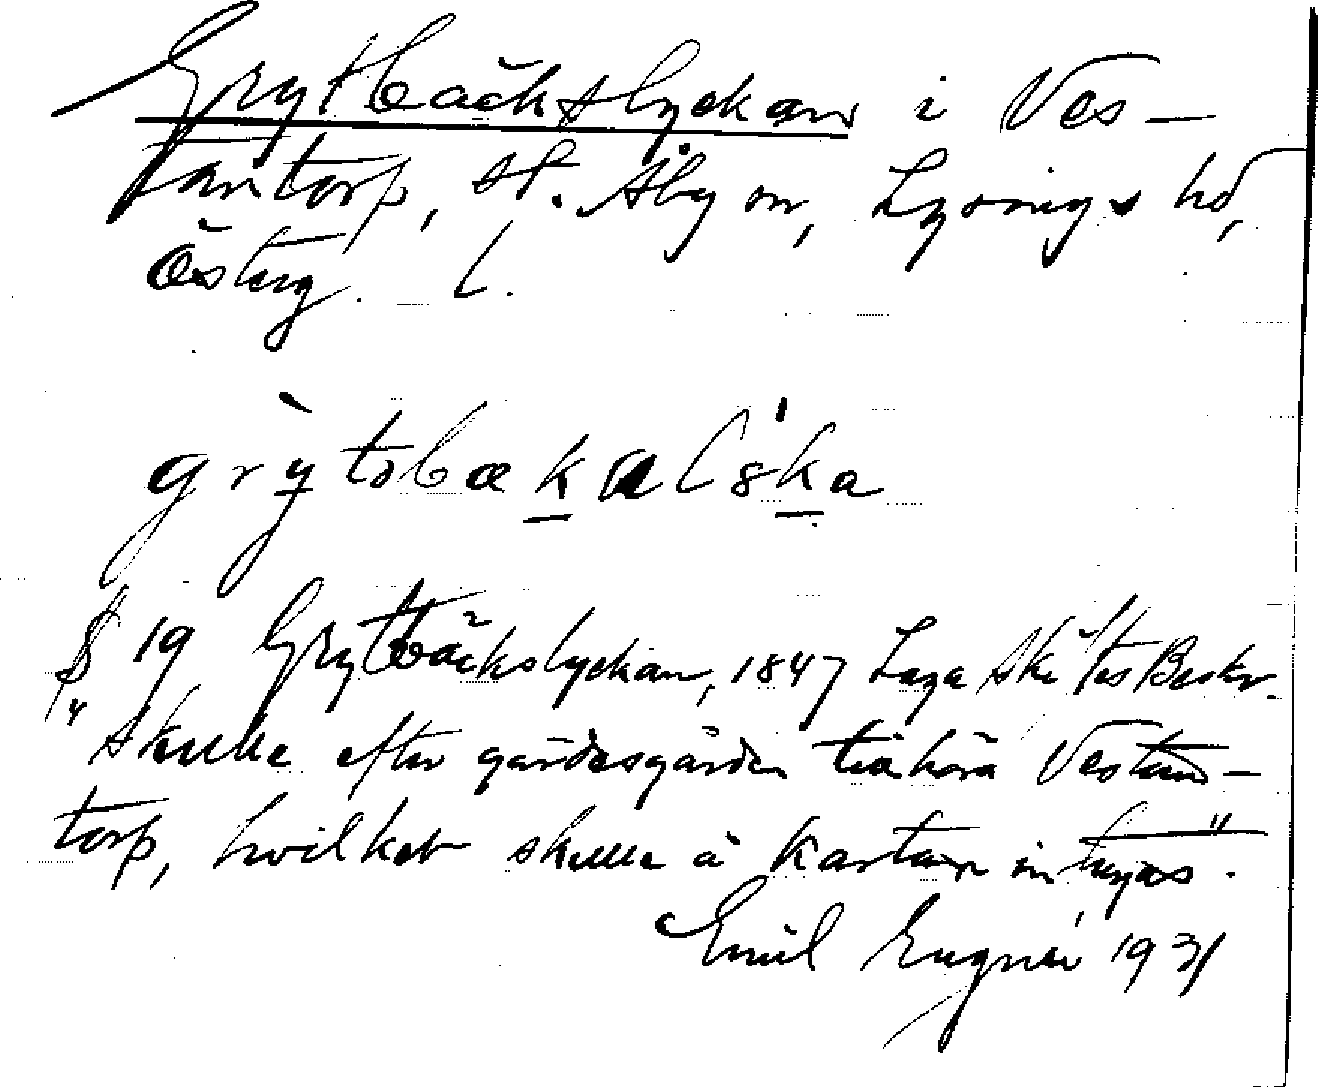 Grytbäckslyckan i Ves-
tantorp, St. Åby sn, Lysings hd,
Österg. l.
§ 19 Grytbäckslyckan, 1847 Laga Skiftes Beskr.
"skulle efter gärdesgården tillhöra Vestan-
torp, hvilket skulle å Kartan intagas".
Emil Eugnér 1931